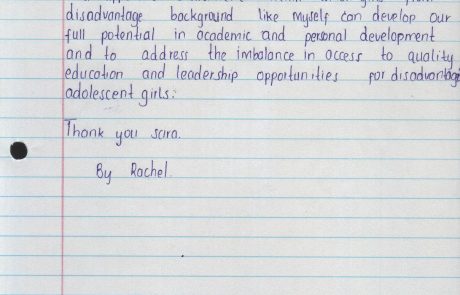 disadvantage background like myself can develop our
full potential in academic and personal development
and to address the imbalance in access to quality
education and leadership opportunities for disadvantage
adolescent girls.
Thank you sara.
By Rachel.